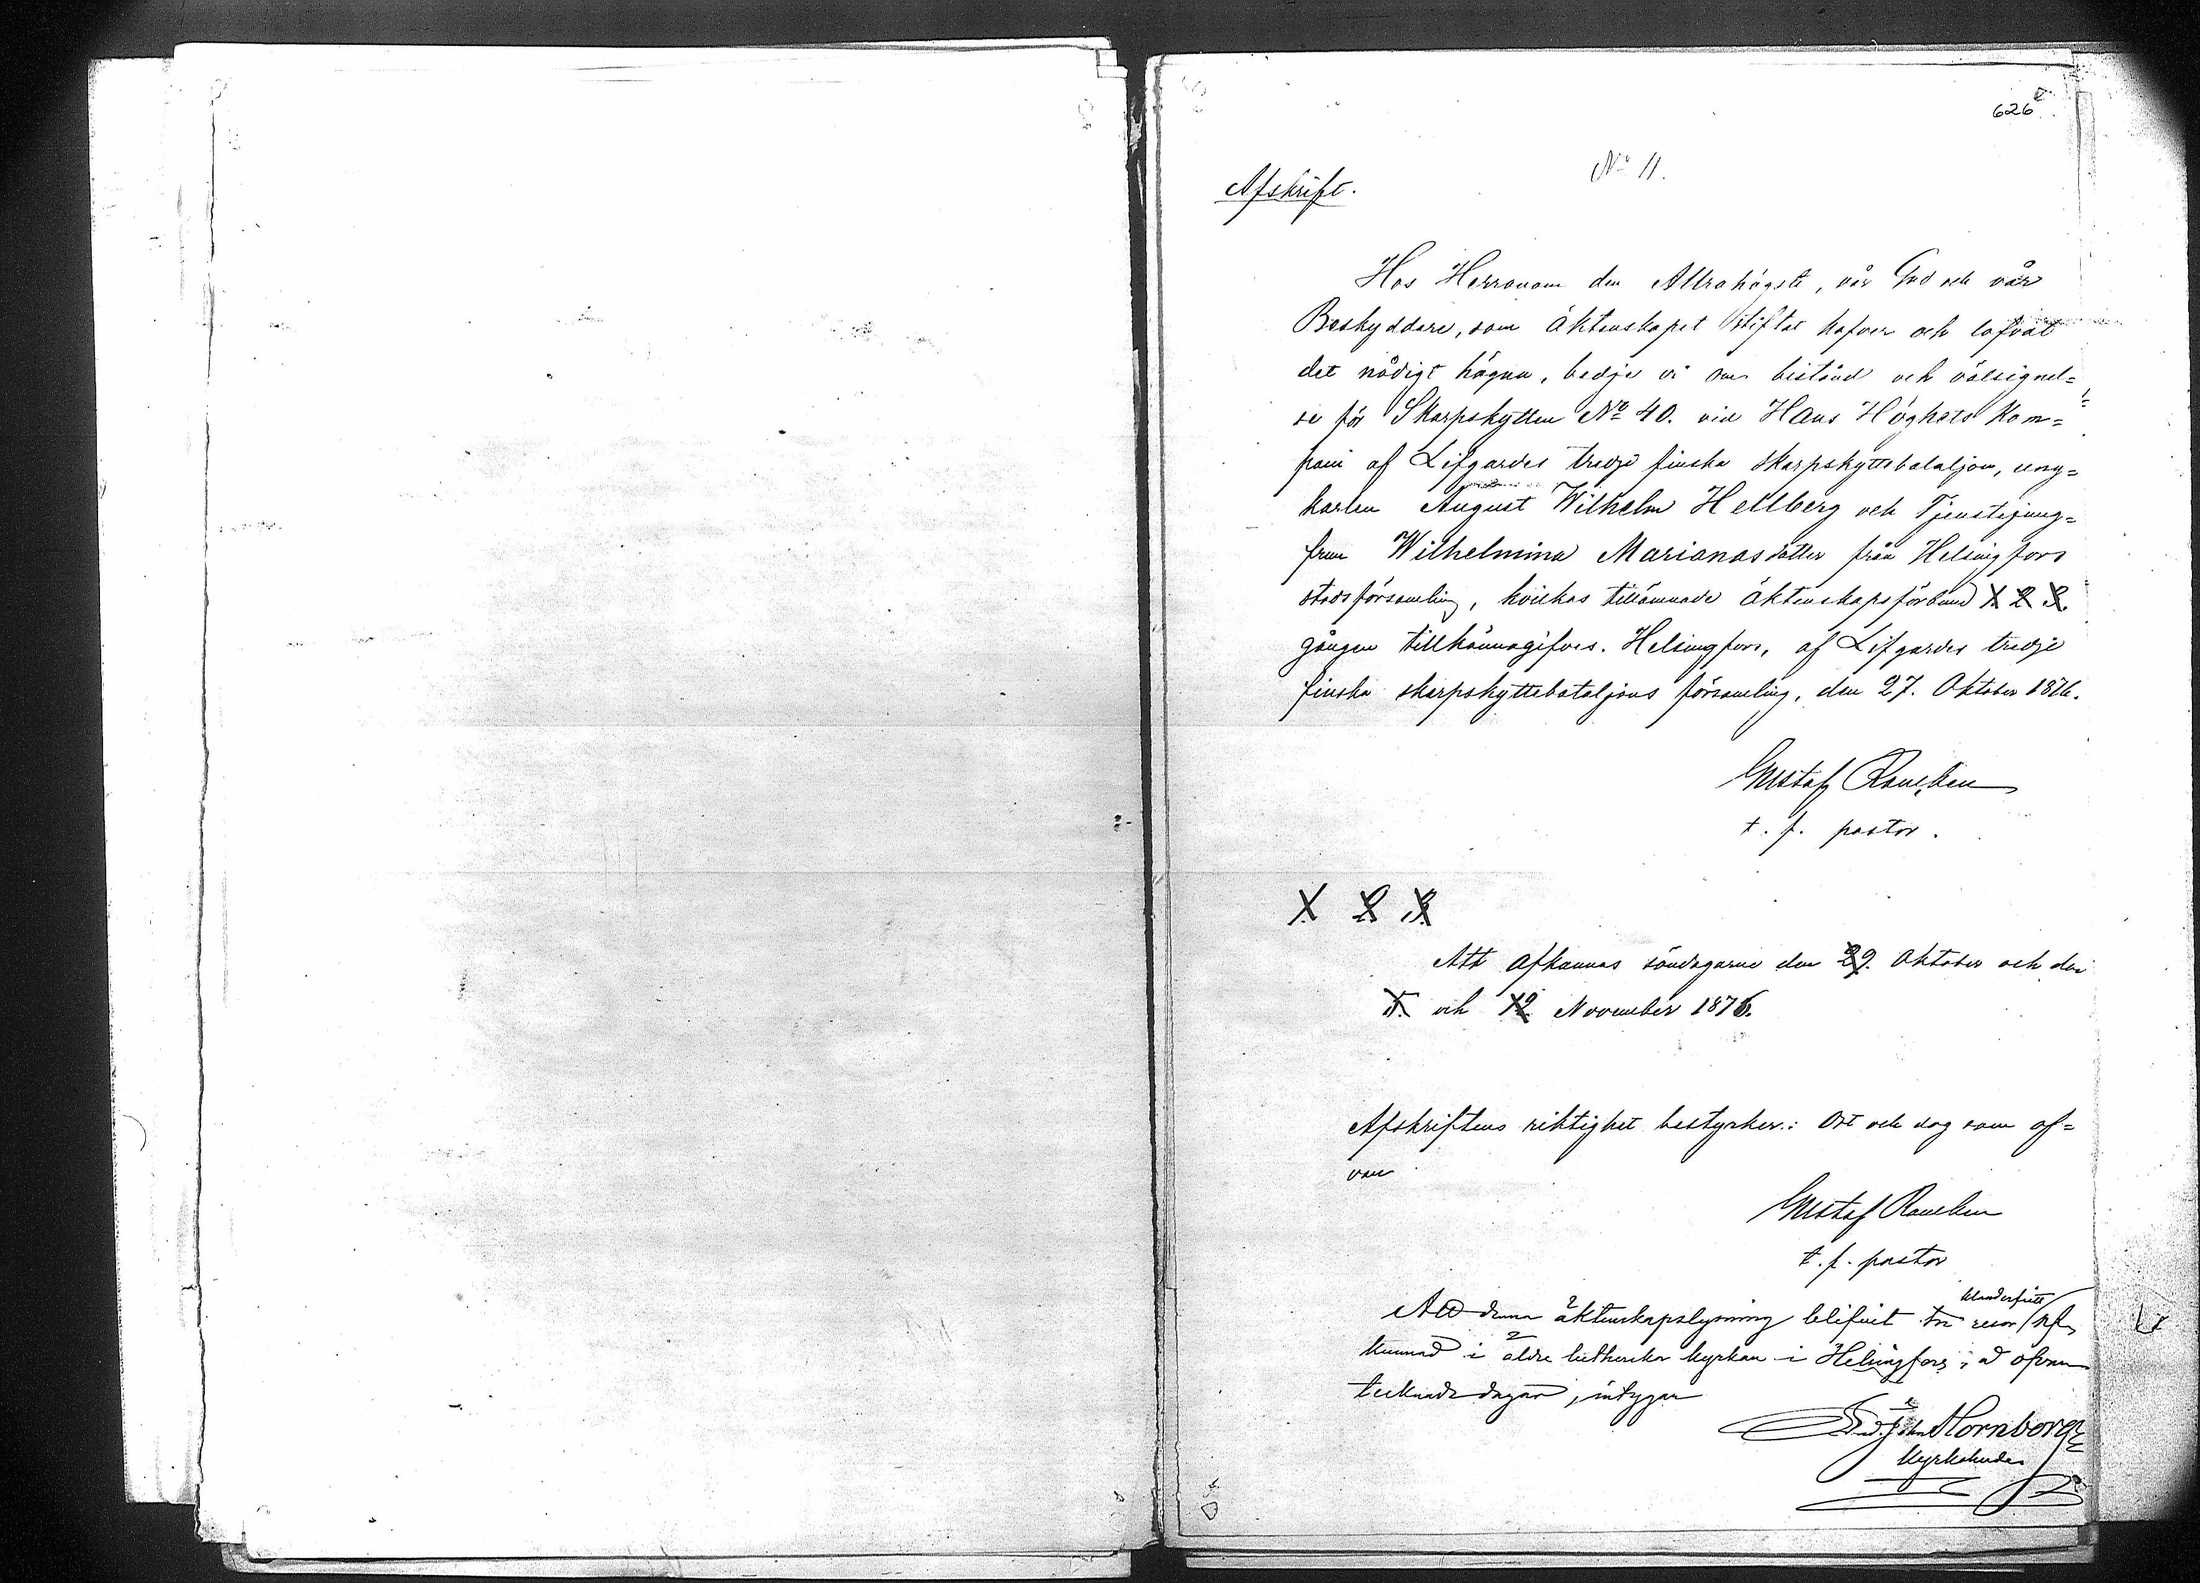 626
No 11.
Afskrift.
Hos Herranom den Allrahögste, vår Gud och vår
Beskyddare, som äktenskapet stiftat hafver och lofvat
det nådigt hägna, bedje vi om bistånd och välsignel=
se för Skarpskytten No 40. vid Hans Höghets Kom=
pani af Lifgardes tredje finska skarpskyttebataljon, ung=
karlen August Wilhelm Hellberg och Tjenstejung=
frun Wilhelmina Marianasdotter från Helsingfors
stadsförsamling, hvilkas tillämnade äktenskapsförbund 1. 2. 3.
gången tillkännagifves. Helsingfors, af Lifgardes tredje
finska skarpskyttebataljons församling, den 27. Oktober 1876.
Gustaf
t. f. pastor.
1. 2. 3.
Att afkunnas söndagarne den 29. Oktober och den
5. och 12 November 1876.
Afskriftens riktighet bestyrker: Ort och dag som of=
van
Gustaf
t. f. pastor
klanderfritt
Att denna äktenskapslysning blifvit tre resor af
kunnad i äldre lutherska kyrkan i Helsingfors, å ofvan
tecknade dagar, intygar
Hornborg